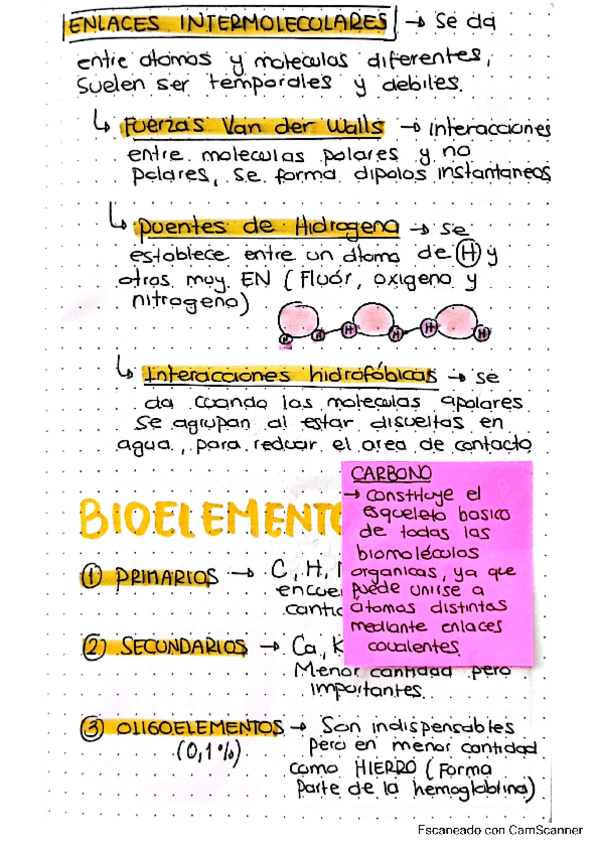 ENLACES INTERMOLECULARES → Se da
entre átomos y moleculas diferentes,
Suelen ser temporales y debiles.
↳ Fuerzas Van der Walls → interacciones
entre moleculas polares y no
polares, se forma dipolos instantaneos
↳ puentes de Hidrogeno → Se
establece entre un átomo de H y
otros muy EN (Fluór, oxigeno y
nitrogeno)
H H H H H
↳ Interacciones hidrofóbicas → se
da cuando las moleculas apolares
se agrupan al estar disueltas en
agua, para reducir el area de contacto
CARBONO
→ constituye el
esqueleto basico
de todas las
biomoléculas
organicas, ya que
puede unirse a
átomos distintos
mediante enlaces
covalentes.
BIOELEMENTO
① PRIMARIOS → C, H,
② SECUNDARIOS → Ca, K
Menor cantidad pero
importantes.
③ OLIGOELEMENTOS → Son indispensables
(0,1%) pero en menor cantidad
como HIERRO (Forma
parte de la hemoglobina)
Escaneado con CamScanner